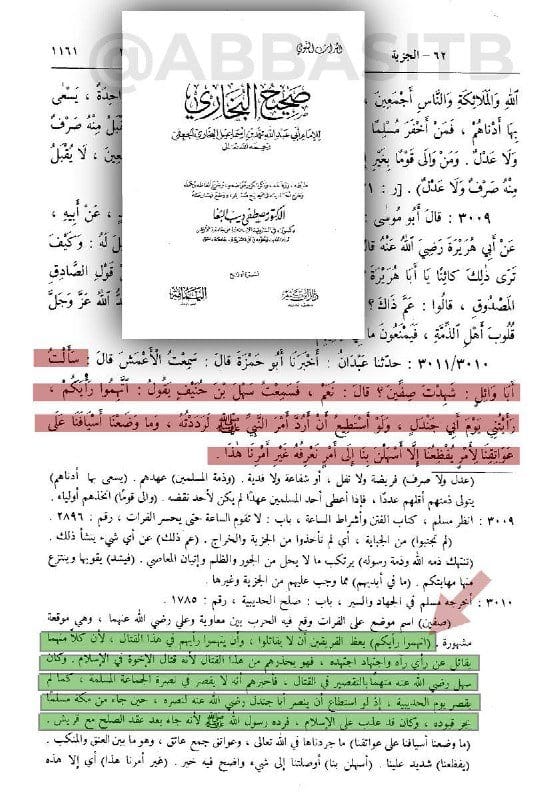 @ABBASITB
٦٢ - الجزية
١١٦١
صحيح البخاري
للإمام أبي عبد الله محمد بن إسماعيل البخاري الجعفي
الدكتور مصطفى ديب البغا
اليمامة
دار ابن كثير
اللهِ وَالمَلَائِكَةِ وَالنَّاسِ أَجْمَعِينَ ،
وَاحِدَةٌ ، يَسْعَى
بِهَا أَدْنَاهُمْ ، فَمَنْ أَخْفَرَ مُسْلِمًا
مِنْهُ صَرْفٌ
وَلَا عَدْلٌ . وَمَنْ وَالَى قَوْمًا بِغَيْرِ
لَا يُقْبَلُ
مِنْهُ صَرْفٌ وَلَا عَدْلٌ) .
٣٠٠٩ : قالَ أَبُو مُوسَى
، عَنْ أَبِيهِ ،
عَنْ أَبِي هُرَيْرَةَ رَضِيَ اللهُ عَنْهُ
لَهُ : وَكَيْفَ
تَرَى ذٰلِكَ كائِنًا يَا أَبَا هُرَيْرَةَ
قَوْلِ الصَّادِقِ
المَصْدُوقِ ، قالُوا : عَمَّ ذَاكَ ؟
اللهُ عَزَّ وَجَلَّ
قُلُوبَ أَهْلِ الذِّمَّةِ ، فَيَمْنَعُونَ ما
٣٠١١/٣٠١٠ : حدّثنا عَبْدَانُ : أَخْبَرَنَا أَبُو حَمْزَةَ قالَ : سَمِعْتُ الأَعْمَشَ قالَ : سَأَلْتُ
أَبَا وَائِلٍ : شَهِدْتَ صِفِّينَ ؟ قالَ : نَعَمْ ، فَسَمِعْتُ سَهْلَ بْنَ حُنَيْفٍ يَقُولُ : اتَّهِمُوا رَأْيَكُمْ ،
رَأَيْتُنِي يَوْمَ أَبِي جَنْدَلٍ ، وَلَوْ أَسْتَطِيعُ أَنْ أَرُدَّ أَمْرَ النَّبِيِّ ﷺ لَرَدَدْتُهُ ، وما وَضَعْنَا أَسْيَافَنَا عَلَى
عَوَاتِقِنَا لِأَمْرٍ يُفْظِعُنَا إِلَّا أَسْهَلْنَ بِنَا إِلَى أَمْرٍ نَعْرِفُهُ غَيْرِ أَمْرِنَا هٰذَا .
(عدل ولا صرف) فريضة ولا نفل ، أو شفاعة ولا فدية . (وذمة المسلمين) عهدهم . (يسعى بها أدناهم)
يتولى ذمتهم أقلهم عددًا ، فإذا أعطى أحد المسلمين عهدًا لم يكن لأحد نقضه . (والى قومًا) اتخذهم أولياء .
٣٠٠٩ : انظر مسلم ، كتاب الفتن وأشراط الساعة ، باب : لا تقوم الساعة حتى يحسر الفرات ، رقم : ٢٨٩٦ .
(لم تجتبوا) من الجباية ، أي لم تأخذوا من الجزية والخراج . (عم ذاك) عن أي شيء ينشأ ذلك .
(تنتهك ذمه الله وذمة رسوله) يرتكب ما لا يحل من الجور والظلم وإتيان المعاصي . (فيشد) يقويها وينتزع
منها مهابتكم . (ما في أيديهم) مما وجب عليهم من الجزية وغيرها .
٣٠١٠ : أخرجه مسلم في الجهاد والسير ، باب : صلح الحديبية ، رقم : ١٧٨٥ .
(صفين) اسم موضع على الفرات وقع فيه الحرب بين معاوية وعلي رضي الله عنهما ، وهي موقعة
مشهورة . (اتهموا رأيكم) يعظ الفريقين أن لا يقاتلوا ، وأن يتهموا رأيهم في هذا القتال ، لأن كلاً منهما
يقاتل عن رأي رآه واجتهاد اجتهده ، فهو يحذرهم من هذا القتال لأنه قتال الإخوة في الإسلام . وكان
سهل رضي الله عنه متهمًا بالتقصير في القتال ، فأخبرهم أنه لا يقصر في نصرة الجماعة المسلمة ، كما لم
يقصر يوم الحديبية ، إذ لو استطاع أن ينصر أبا جندل رضي الله عنه لنصره ، حين جاء من مكة مسلمًا
يجر قيوده ، وكان قد عذب على الإسلام ، فرده رسول الله ﷺ لأنه جاء بعد عقد الصلح مع قريش .
(ما وضعنا أسيافنا على عواتقنا) ما جردناها في الله تعالى ، وعواتق جمع عاتق ، وهو ما بين العنق والمنكب .
(يفظعنا) شديد علينا . (أسهلن بنا) أوصلتنا إلى شيء واضح فيه خير . (غير أمرنا هذا) أي إلا هذه